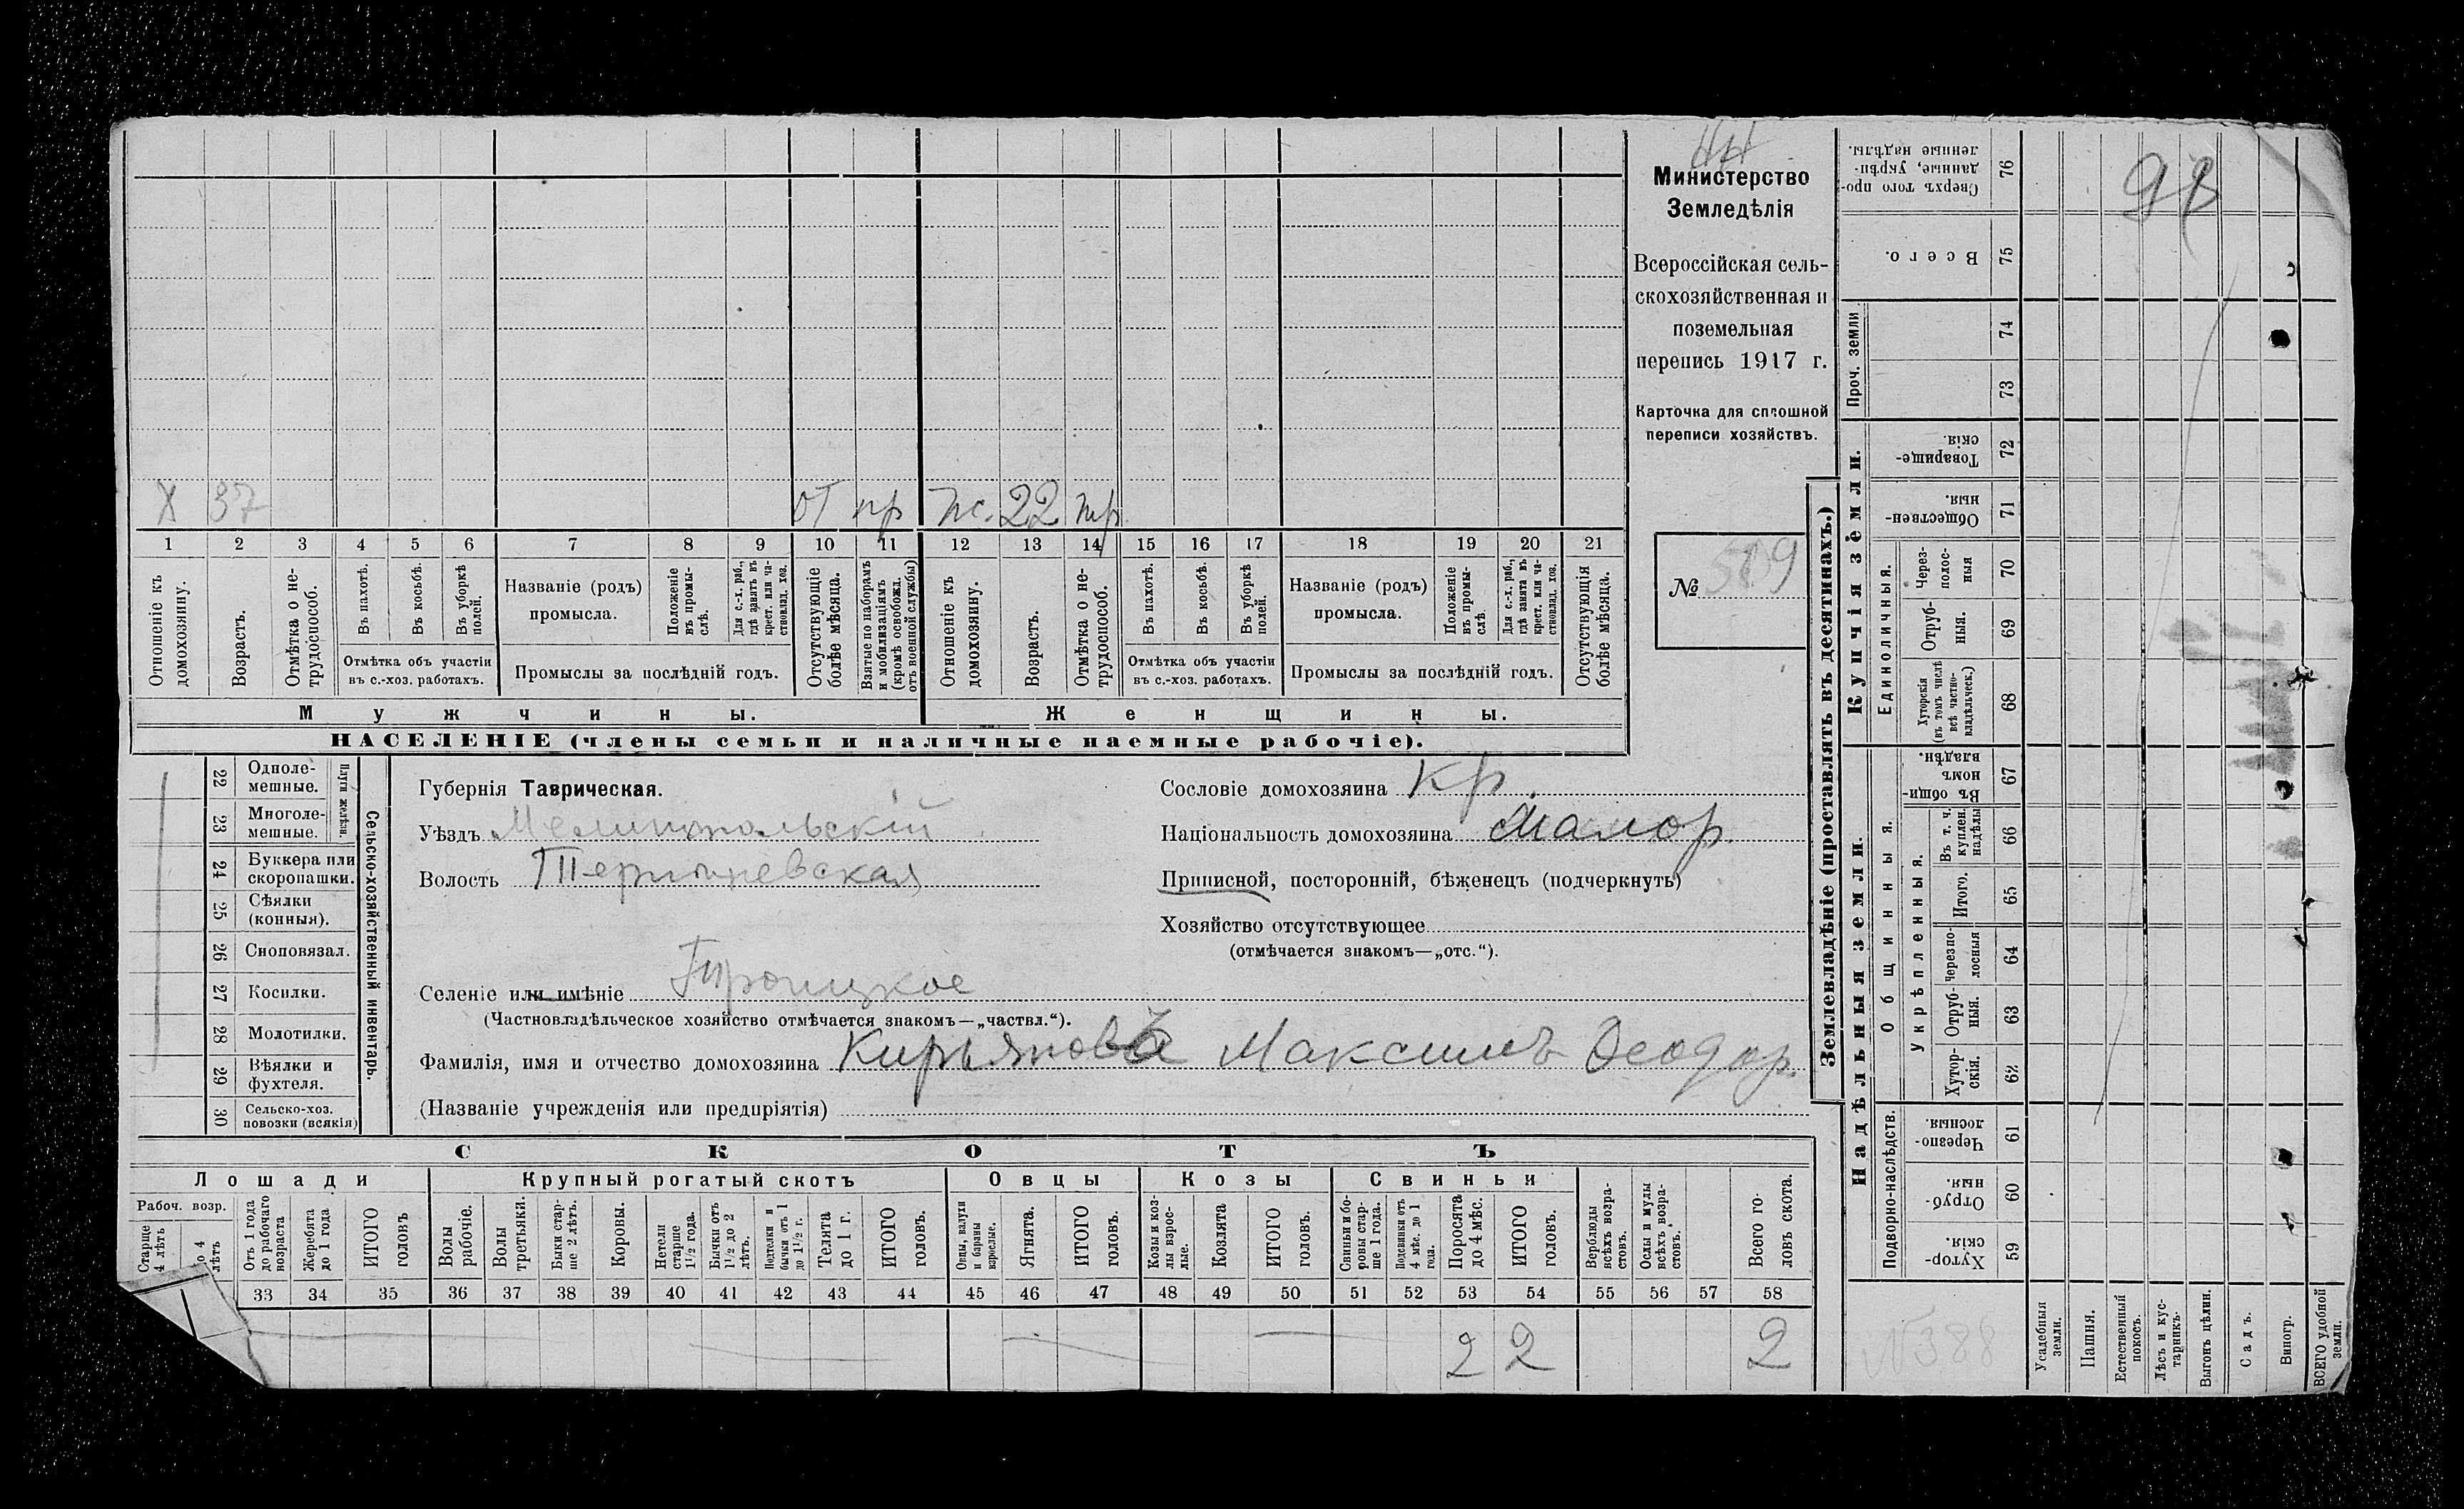 Х 37 от пр пс. 22 пр
1 2 3 4 5 6 7 8 9 10 11 12 13 14 15 16 17 18 19 20 21
Отношеніе къ домохозяину.
Возрастъ.
Отмѣтка о не-
трудоспособ.
Въ пахотѣ.
Въ косьбѣ.
Въ уборкѣ полей.
Отмѣтка объ участіи
въ с.-хоз. работахъ.
Названіе (родъ)
промысла.
Положеніе въ промы-
слѣ.
Для с.-х. раб., гдѣ занятъ въ крест. или ча-
стновлад. хоз.
Промыслы за послѣдній годъ.
Отсутствующіе болѣе мѣсяца.
Взятые по наборамъ и мобилизаціямъ (кромѣ освобожд. отъ военной службы)
Отношеніе къ домохозяину.
Возрастъ.
Отмѣтка о не-
трудоспособ.
Въ пахотѣ.
Въ косьбѣ.
Въ уборкѣ полей.
Отмѣтка объ участіи
въ с.-хоз. работахъ.
Названіе (родъ)
промысла.
Положеніе въ промы-
слѣ.
Для с.-х. раб., гдѣ занята въ крест. или ча-
стновлад. хоз.
Промыслы за послѣдній годъ.
Отсутствующія болѣе мѣсяца.
Мужчины.
Женщины.
НАСЕЛЕНІЕ (члены семьи и наличные наемные рабочіе).
Министерство
Земледѣлія
Всероссійская сель-
скохозяйственная и
поземельная
перепись 1917 г.
Карточка для сплошной
переписи хозяйствъ.
№
22 Одноле-
мешные.
23 Многоле-
мешные.
Плуги желѣзн.
24 Буккера или
скоропашки.
25 Сѣялки
(конныя).
26 Сноповязал.
27 Косилки.
28 Молотилки.
29 Вѣялки и
фухтеля.
30 Сельско-хоз.
повозки (всякія)
Сельско-хозяйственный инвентарь.
Губернія Таврическая.
Уѣздъ Мелитопольскій
Волость
Селеніе или имѣніе Троицкое
(Частновладѣльческое хозяйство отмѣчается знакомъ—„частвл.“).
Фамилія, имя и отчество домохозяина Кирьяновъ Максимъ Ѳеодор.
(Названіе учрежденія или предпріятія)
Сословіе домохозяина кр.
Національность домохозяина Малор.
Приписной, посторонній, бѣженецъ (подчеркнуть)
Хозяйство отсутствующее
(отмѣчается знакомъ—„отс.“).
СКОТЪ
Лошади
Крупный рогатый скотъ
Овцы
Козы
Свиньи
Рабоч. возр.
Старше 4 лѣтъ
До 4 лѣтъ
Отъ 1 года до рабочаго возраста
Жеребята до 1 года
ИТОГО головъ
Волы рабочіе.
Волы третьяки.
Быки стар-
ше 2 лѣтъ.
Коровы.
Нетели старше 1½ года.
Бычки отъ 1½ до 2 лѣтъ.
Нетелки и бычки отъ 1 до 1½ г.
Телята до 1 г.
ИТОГО головъ.
Овцы, валухи и бараны взрослые.
Ягнята.
ИТОГО головъ.
Козы и коз-
лы взрос-
лые.
Козлята
ИТОГО головъ.
Свиньи и бо-
ровы стар-
ше 1 года.
Подсвинки отъ 4 мѣс. до 1 года.
Поросята до 4 мѣс.
ИТОГО головъ.
Верблюды всѣхъ возра-
стовъ.
Ослы и мулы всѣхъ возра-
стовъ.
Всего го-
ловъ скота.
33 34 35 36 37 38 39 40 41 42 43 44 45 46 47 48 49 50 51 52 53 54 55 56 57 58
2 2 2
Землевладѣніе (проставлять въ десятинахъ.)
Надѣльныя земли.
Купчія земли.
Проч. земли
Сверхъ того про-
данные, укрѣп-
ленные надѣлы.
76
Всего.
75
74
73
Товарище-
скія.
72
Обществен-
ныя.
71
Единоличныя.
Через-
полос-
ныя
70
Отруб-
ныя.
69
Хуторскія (въ томъ числѣ всѣ частно-
владѣльческ.)
68
Общинныя.
Въ общи-
номъ
владѣн.
67
Укрѣпленныя.
Въ т. ч. куплен. надѣлы
66
Итого.
65
Черезпо-
лосныя
64
Отруб-
ныя.
63
Хутор-
скія.
62
Подворно-наслѣдств.
Черезпо-
лосныя.
61
Отруб-
ныя.
60
Хутор-
скія.
59
Усадебныя земли.
Пашня.
Естественный покосъ.
Лѣсъ и кус-
тарникъ.
Выгонъ цѣлин.
Садъ.
Виногр.
ВСЕГО удобной земли.
98